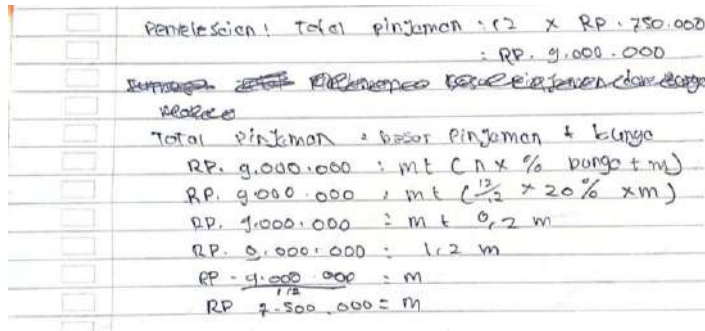 Penyelesaian : Total pinjaman : 12 x RP. 750.000
: RP. 9.000.000
Total Pinjaman = besar Pinjaman + bunga
RP. 9.000.000 : m + ( n x % bunga + m)
RP. 9.000.000 : m + (12/12 x 20% x m)
RP. 9.000.000 = m + 0,2 m
RP. 9.000.000 : 1,2 m
RP. 9.000.000 / 1,2 : m
RP 7.500.000 = m